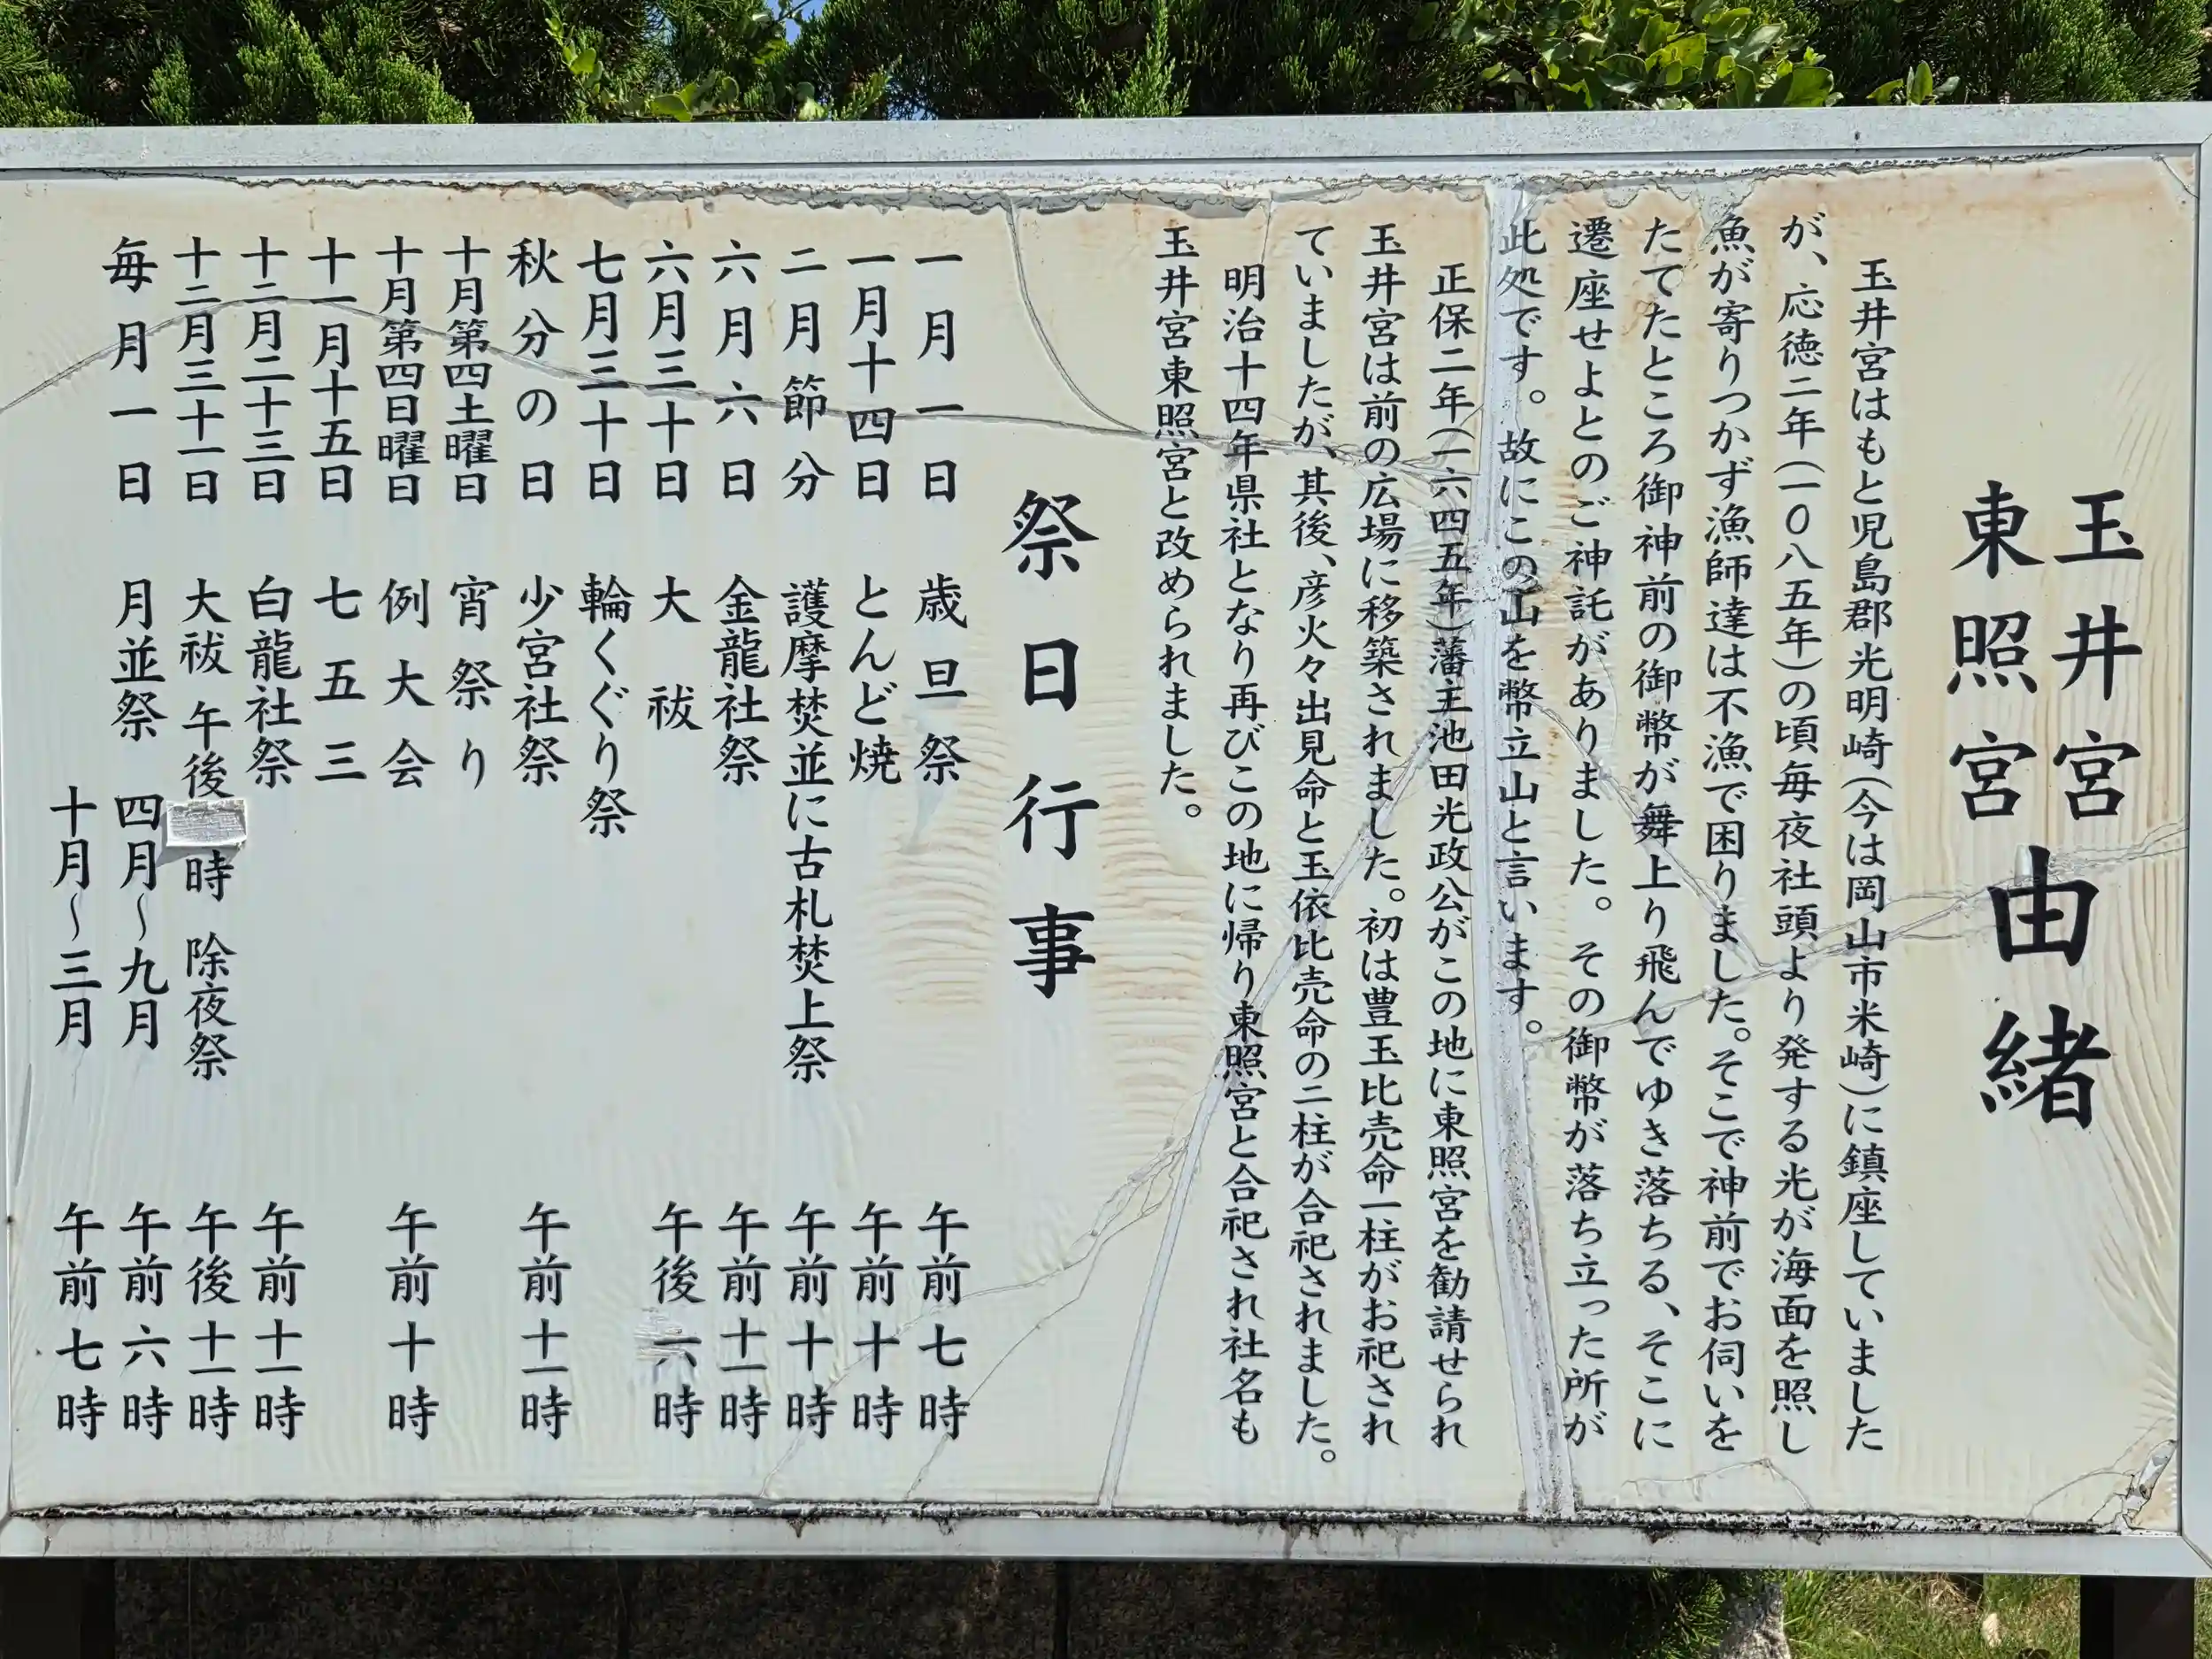 玉井宮
東照宮
由緒
玉井宮はもと児島郡光明崎(今は岡山市米崎)に鎮座していました
が、応徳二年(一〇八五年)の頃毎夜社頭より発する光が海面を照し
魚が寄りつかず漁師達は不漁で困りました。そこで神前でお伺いを
たてたところ御神前の御幣が舞上り飛んでゆき落ちる、そこに
遷座せよとのご神託がありました。その御幣が落ち立った所が
此処です。故にこの山を幣立山と言います。
正保二年(一六四五年)藩主池田光政公がこの地に東照宮を勧請せられ
玉井宮は前の広場に移築されました。初は豊玉比売命一柱がお祀され
ていましたが、其後、彦火々出見命と玉依比売命の二柱が合祀されました。
明治十四年県社となり再びこの地に帰り東照宮と合祀され社名も
玉井宮東照宮と改められました。
祭日行事
一月一日 歳旦祭 午前七時
一月十四日 とんど焼 午前十時
二月節分 護摩焚並に古札焚上祭 午前十時
六月六日 金龍社祭 午前十一時
六月三十日 大祓 午後六時
七月三十日 輪くぐり祭
秋分の日 少宮社祭 午前十一時
十月第四土曜日 宵祭り
十月第四日曜日 例大会 午前十時
十一月十五日 七五三
十二月二十三日 白龍社祭 午前十一時
十二月三十一日 大祓 午後 時 除夜祭 午後十一時
毎月一日 月並祭 四月〜九月 午前六時
十月〜三月 午前七時